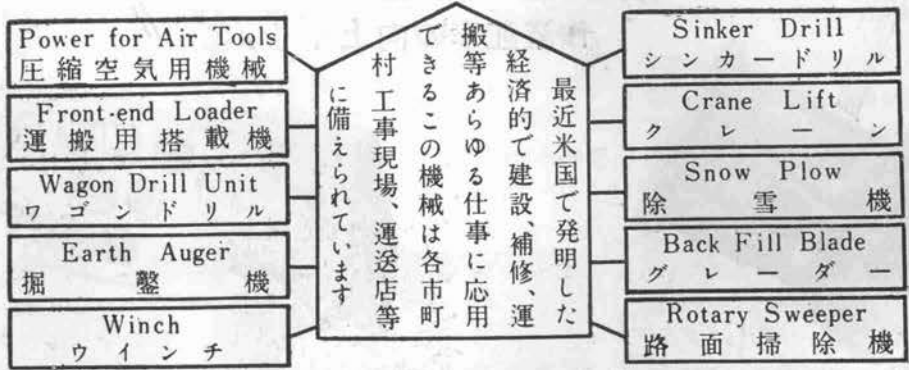 Power for Air Tools
圧縮空気用機械
Front-end Loader
運搬用搭載機
Wagon Drill Unit
ワゴンドリル
Earth Auger
掘鑿機
Winch
ウインチ
最近米国で発明した
経済的で建設、補修、運
搬等あらゆる仕事に応用
できるこの機械は各市町
村 工事現場、運送店等
に備えられています
Sinker Drill
シンカードリル
Crane Lift
クレーン
Snow Plow
除雪機
Back Fill Blade
グレーダー
Rotary Sweeper
路面掃除機